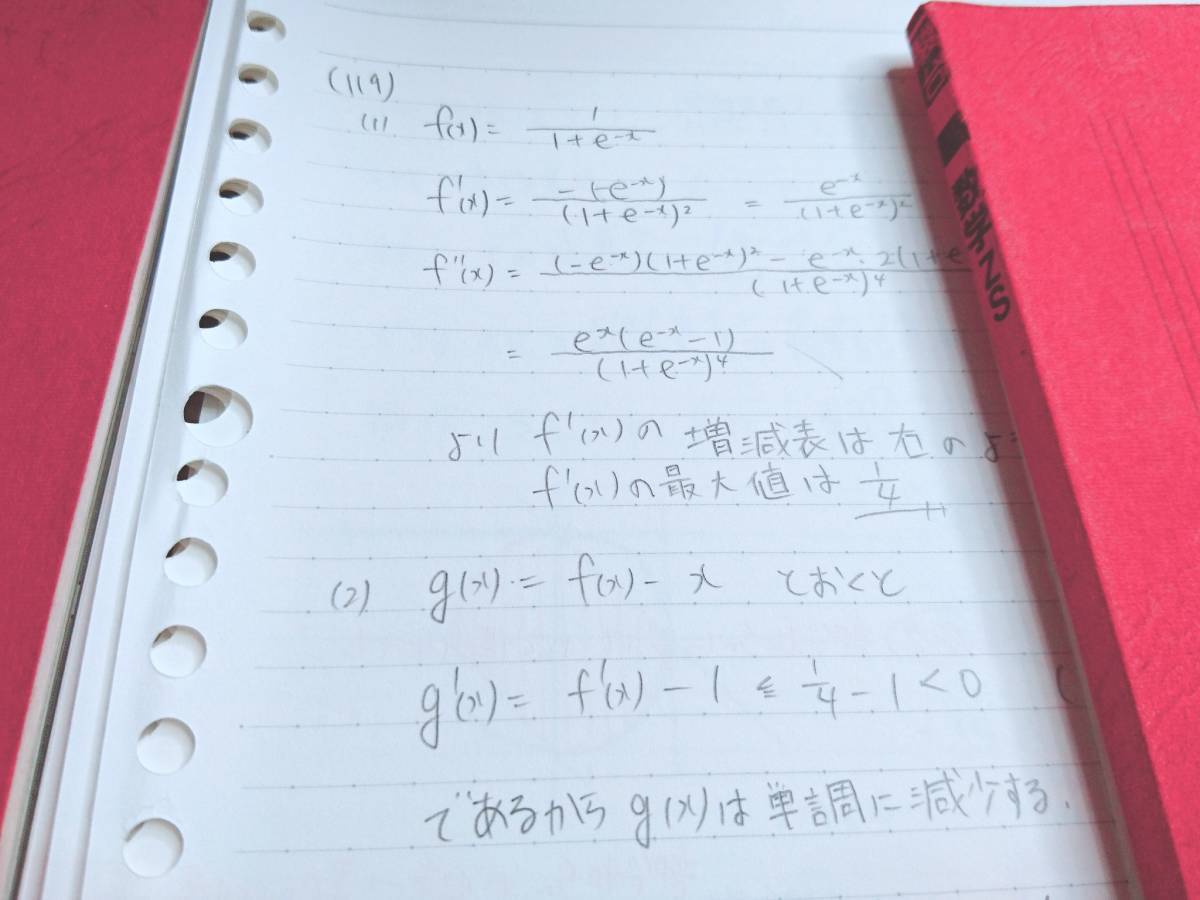 (119)
(1) f(x) = 1/(1+e^{-x})
f'(x) = -(-e^{-x})/(1+e^{-x})^2 = e^{-x}/(1+e^{-x})^2
f''(x) = (-e^{-x})(1+e^{-x})^2 - e^{-x}・2(1+e/(1+e^{-x})^4
= e^x(e^{-x}-1)/(1+e^{-x})^4
より f'(x)の 増減表は右のよ
f'(x)の最大値は 1/4
(2) g(x) = f(x) - x とおくと
g'(x) = f'(x) - 1 ≦ 1/4 - 1 < 0 (
であるから g(x)は単調に減少する.